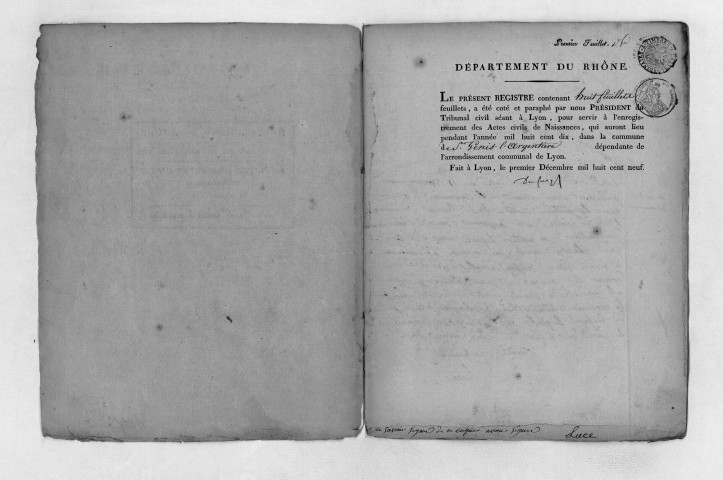 Premier Feuillet.
DÉPARTEMENT DU RHÔNE.
LE PRÉSENT REGISTRE contenant huit feuillets
feuillets, a été coté et paraphé par nous PRÉSIDENT du
Tribunal civil séant à Lyon, pour servir à l'enregis-
trement des Actes civils de Naissances, qui auront lieu
pendant l'année mil huit cent dix, dans la commune
de St Genis l'Argentière dépendante de
l'arrondissement communal de Lyon.
Fait à Lyon, le premier Décembre mil huit cent neuf.
ne savoir signer de ce enquis avons signé
Luce